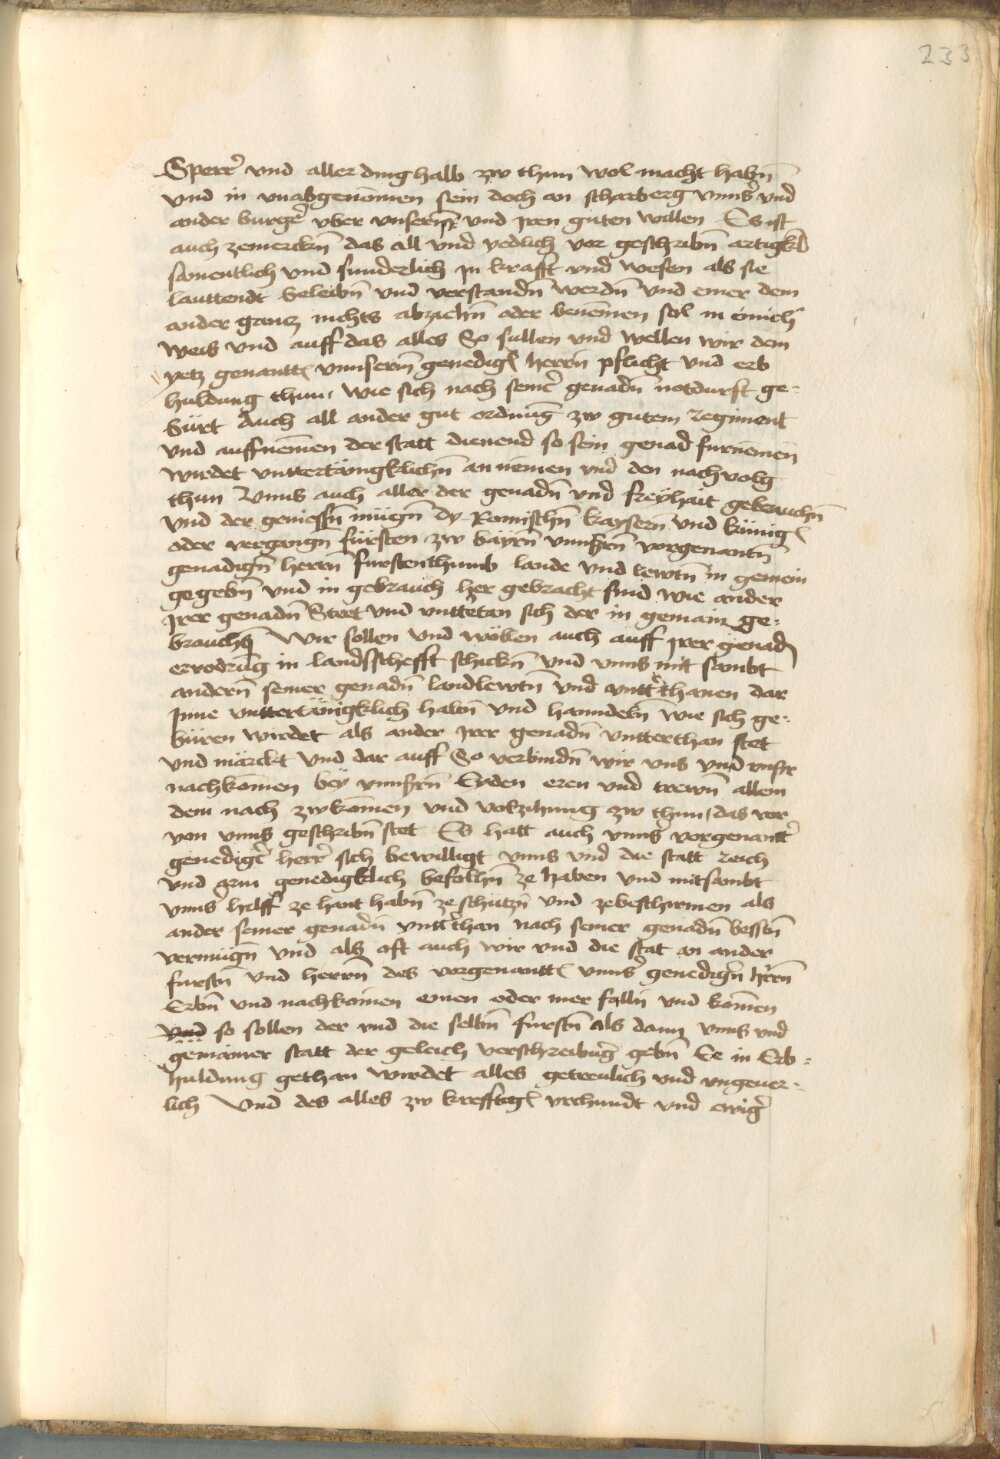 233
Sperr vnd aller ding halb zw thun wol macht habn
vnd in vnabgenomen sein doch an scharberg vnns vnd
ander burger vber vnsern vnd jren guten willen Es ist
auch zemerckn das all vnd yedlich vor geschribn artigkl
samentlich vnd sunderlich jn krafft vnd wesen als sie
lauttendt beleibn vnd verstandn werdn vnd einer dem
ander gancz nichts abziehn oder benemen sol in einich
weis vnd auff das alles So sullen vnd wellen wir dem
yetz genantt vnnsern genedign herrn pflicht vnd erb
huldung thun wie sich nach seiner genadn notdurft ge-
bürt Auch all ander gut ordnung zw gutem Regiment
vnd auffnemen der statt dienend so sein genad furnemen
wurdet vnttertänigklichn an nemen vnd den nachvolg
thun Vnns auch aller der genadn vnd freyhait gebrauchn
vnd der geniessn mügn dy Romischn kaysern vnd künig
oder vergangn fürsten zw bayrn vnnsern vorgenantn
genadign herrn furstenthumb lande vnd lewtn in gemein
gegebn vnd in gebrauch her gebracht sind wie ander
jrer genadn Stet vnd vnttetan sich der in gemain ge-
brauchn Wir sollen vnd wöllen auch auff jrer genad
ervodrung in landsschefft schickn vnd vnns mit sambt
andern seiner genadn landlewtn vnd vntterthanen dar
jnne vnttertänigklich haltn vnd hanndeln wie sich ge-
büren wirdet als ander jrer genadn vntterthan stet
vnd märckt vnd dar auff So verbindn wir vns vnd vnsr
nachkomen bey vnnsern Eyden eren vnd trewn allem
dem nach zwkomen vnd volziehung zw thun das vor
von vnns geschribn stet Es hatt auch vnns vorgenantt
genedigr herr sich bewilligt vnns vnd die statt reich
vnd arm genedigklich befolhn ze haben vnd mitsambt
vnns hilff ze hant habn ze schützn vnd zebeschirmen als
ander seiner genadn vntthan nach seiner genadn bessten
vermügn vnd als oft auch wir vnd die stat an ander
furstn vnd herrn des vorgenantt vnns genedign hrrn
Erbn vnd nachkomen einen oder mer falln vnd komen
vnd so sollen der vnd die selbn furstn als dann vnns vnd
gemainer statt der geleich verschreibung gebn Ee in Erb-
huldung gethan wirdet alles getreulich vnd vngeuer-
lich Vnd des alles zw krefftig vrchundt vnd ewigr